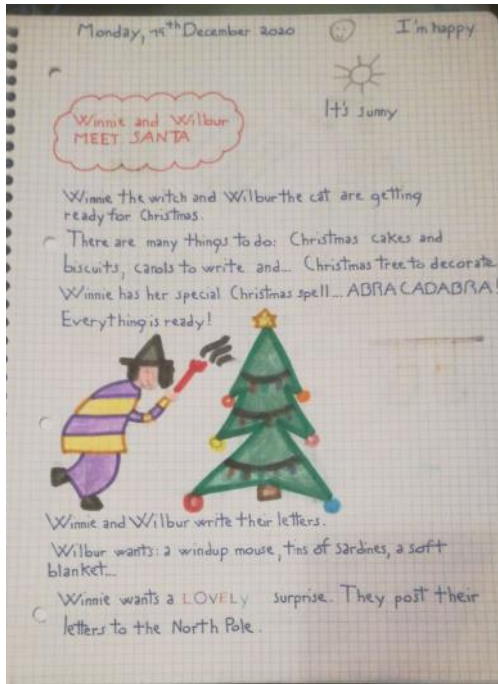 Monday, 15th December 2020 I'm happy
It's sunny
Winnie and Wilbur
MEET SANTA
Winnie the witch and Wilbur the cat are getting
ready for Christmas.
There are many things to do: Christmas cakes and
biscuits, carols to write and... Christmas tree to decorate.
Winnie has her special Christmas spell... ABRACADABRA!
Everything is ready!
Winnie and Wilbur write their letters.
Wilbur wants: a windup mouse, tins of sardines, a soft
blanket...
Winnie wants a LOVELY surprise. They post their
letters to the North Pole.